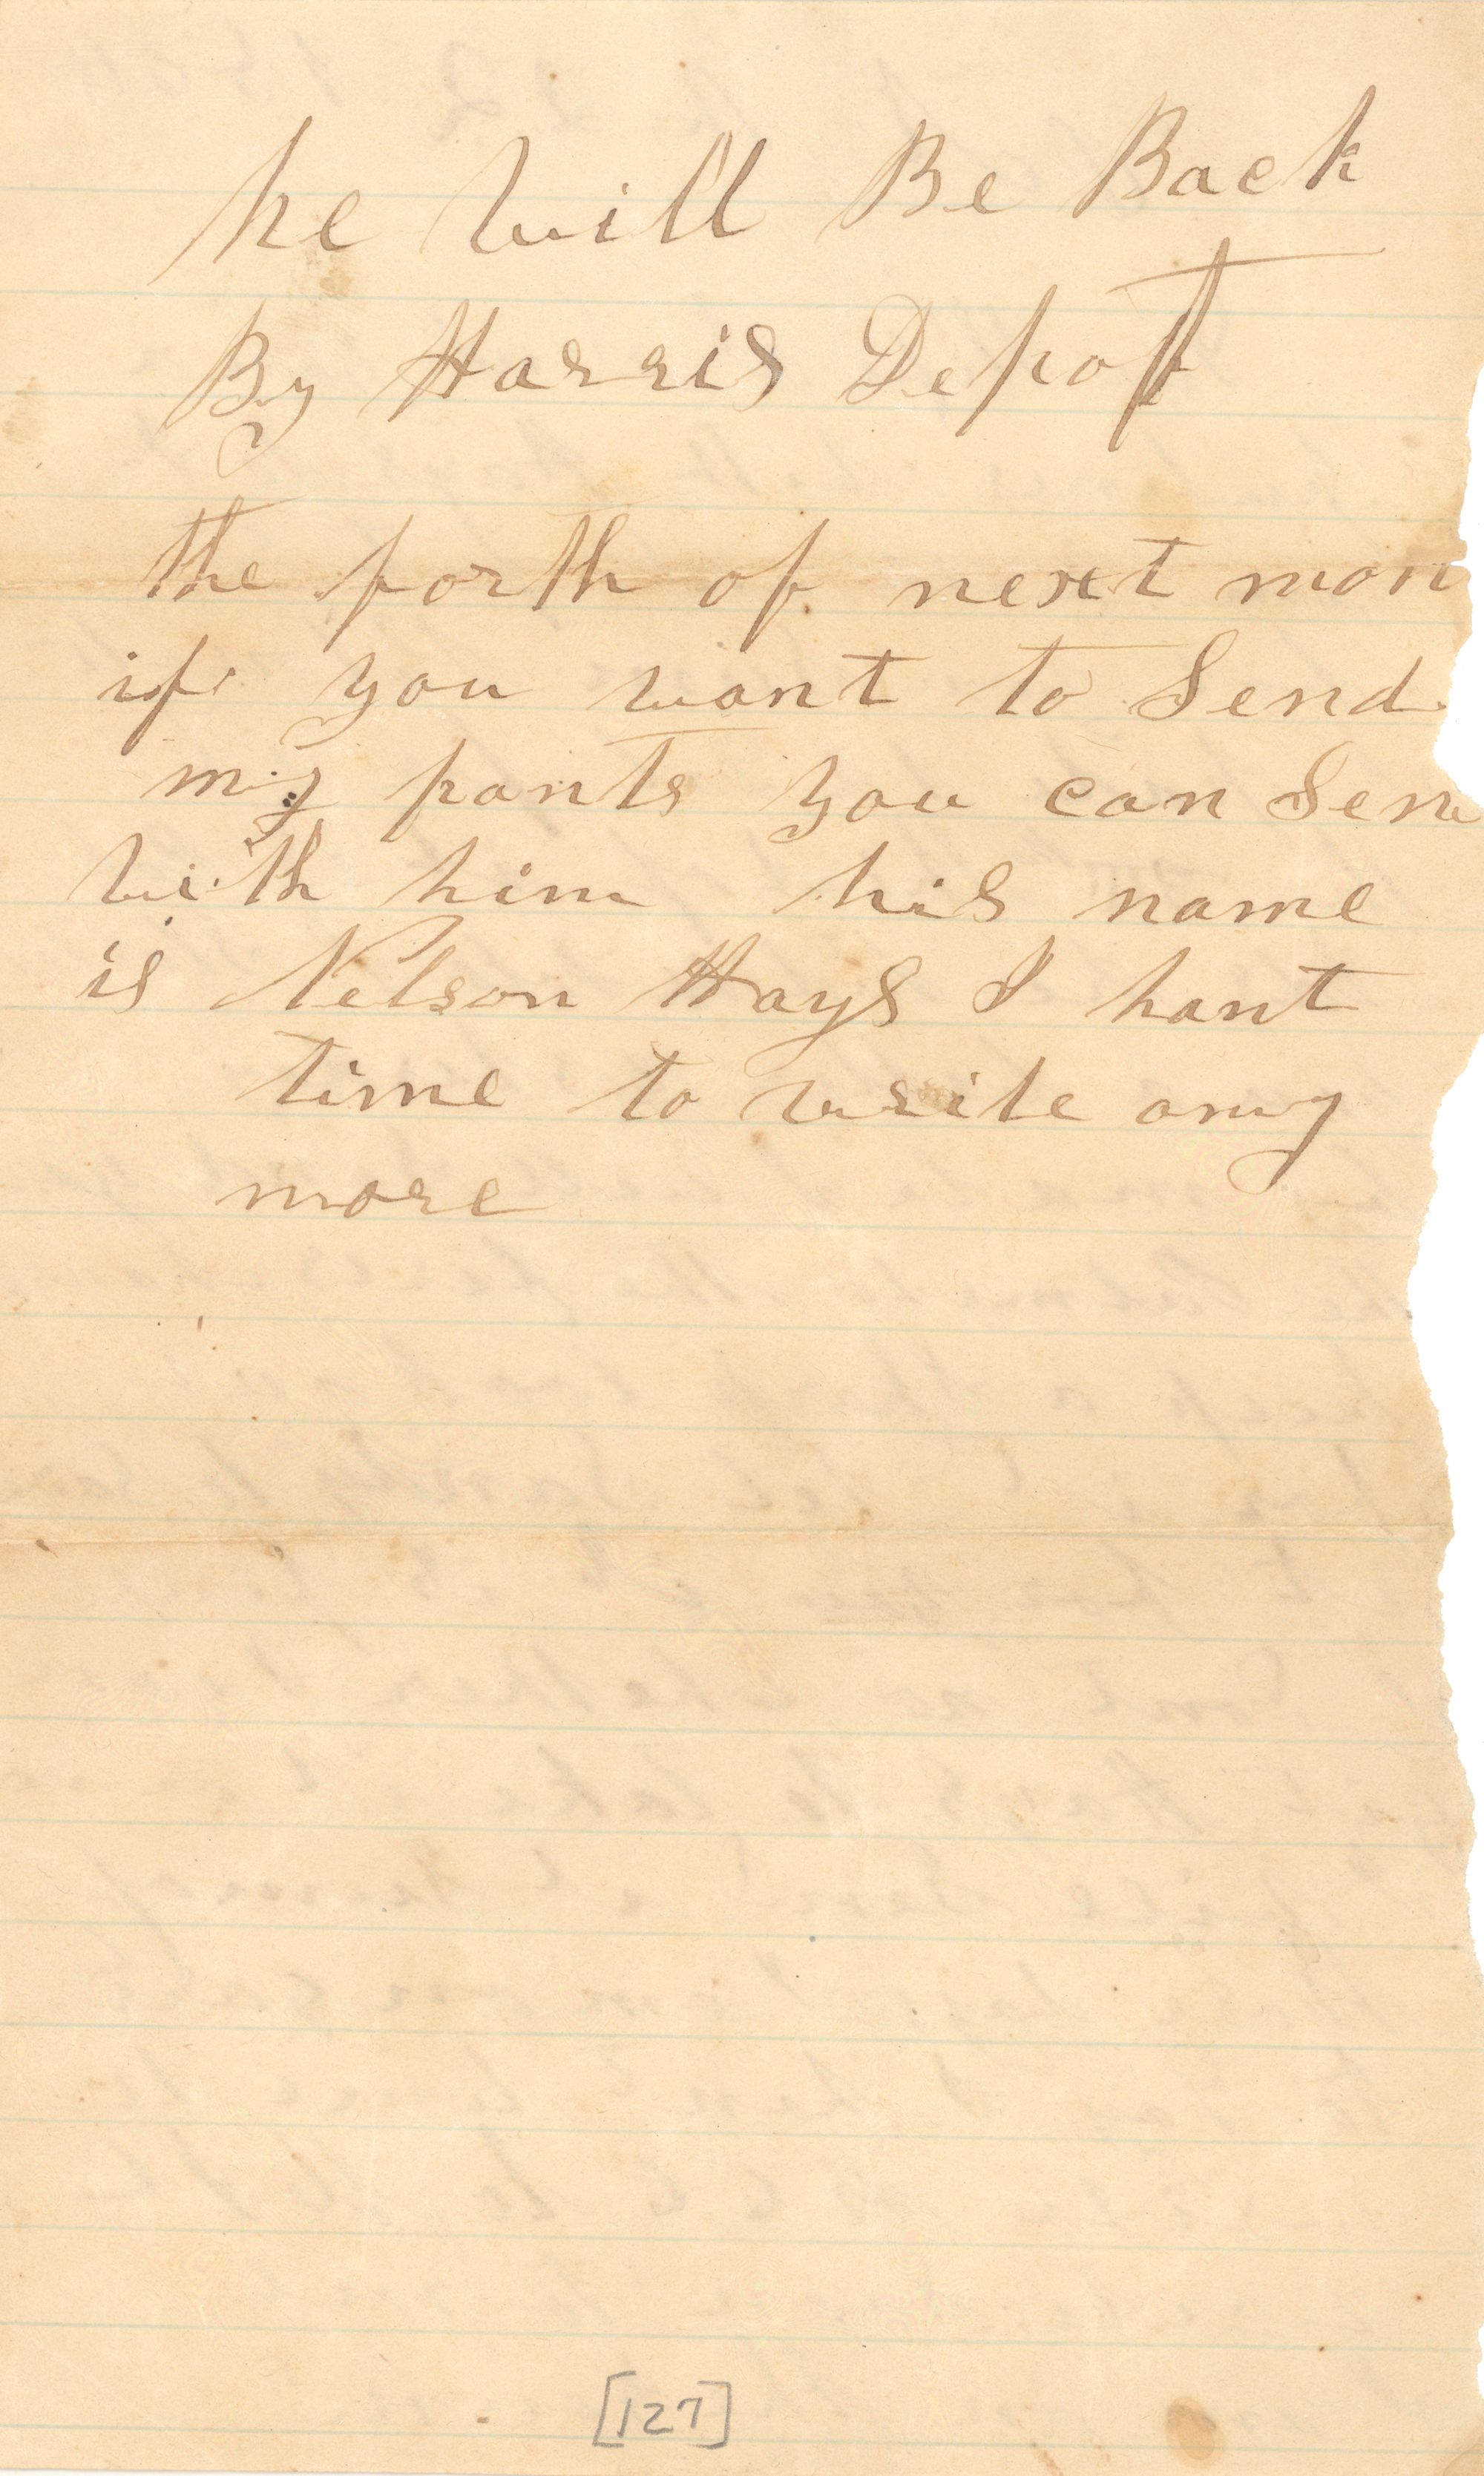 he will Be Back
By Harris Depot
the forth of next mon
if you want to Send
my pants you can Sen
with him his name
is Nelson Hays I hant
time to write any
more
[127]